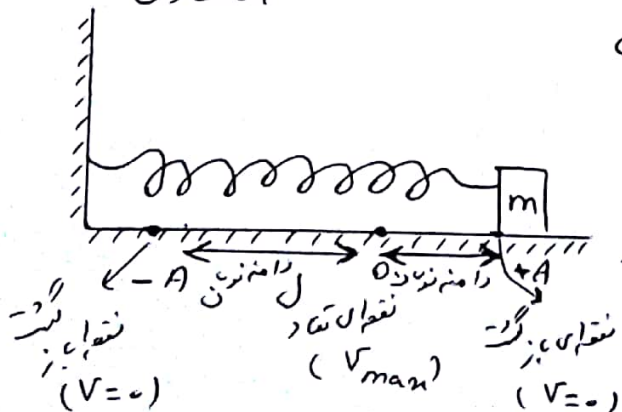 m
-A دامنه نوسان O دامنه نوسان +A
نقطه‌ی بازگشت
(V=0)
نقطه‌ی تعادل
(Vmax)
نقطه‌ی بازگشت
(V=0)